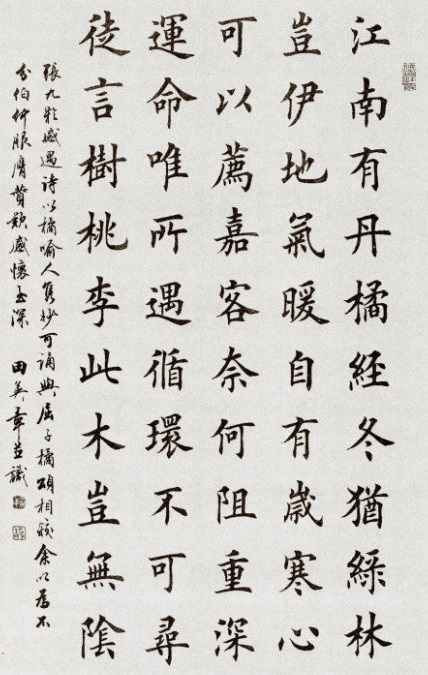 江南有丹橘經冬猶綠林
豈伊地氣暖自有歲寒心
可以薦嘉客奈何阻重深
運命唯所遇循環不可尋
徒言樹桃李此木豈無陰
張九齡感遇詩以橘喻人隽妙可誦與屈子橘頌相頡余以為不
分伯仲服膺贊歎感懷至深 田英章並識